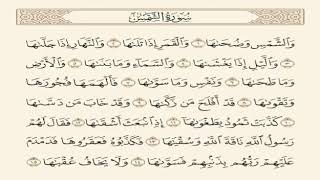 سُورَةُ الشَّمْسِ
وَالشَّمْسِ وَضُحَىٰهَا ١ وَالْقَمَرِ إِذَا تَلَىٰهَا ٢ وَالنَّهَارِ إِذَا جَلَّىٰهَا
٣ وَالَّيْلِ إِذَا يَغْشَىٰهَا ٤ وَالسَّمَآءِ وَمَا بَنَىٰهَا ٥ وَالْأَرْضِ
وَمَا طَحَىٰهَا ٦ وَنَفْسٍ وَمَا سَوَّىٰهَا ٧ فَأَلْهَمَهَا فُجُورَهَا
وَتَقْوَىٰهَا ٨ قَدْ أَفْلَحَ مَن زَكَّىٰهَا ٩ وَقَدْ خَابَ مَن دَسَّىٰهَا
١٠ كَذَّبَتْ ثَمُودُ بِطَغْوَىٰهَآ ١١ إِذِ انۢبَعَثَ أَشْقَىٰهَا ١٢ فَقَالَ لَهُمْ
رَسُولُ اللَّهِ نَاقَةَ اللَّهِ وَسُقْيَٰهَا ١٣ فَكَذَّبُوهُ فَعَقَرُوهَا فَدَمْدَمَ
عَلَيْهِمْ رَبُّهُم بِذَنۢبِهِمْ فَسَوَّىٰهَا ١٤ وَلَا يَخَافُ عُقْبَٰهَا ١٥